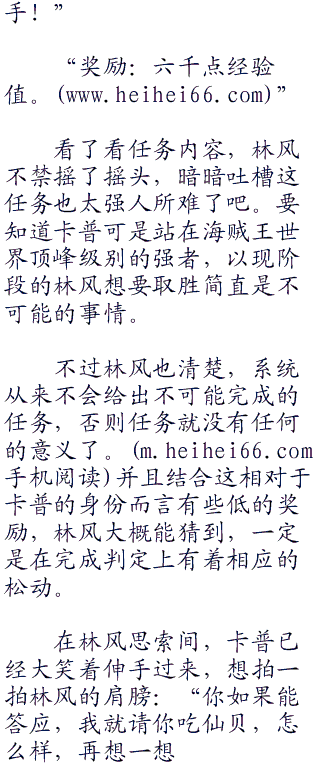 手！”
“奖励：六千点经验
值。(www.heihei66.com)”
看了看任务内容，林风
不禁摇了摇头，暗暗吐槽这
任务也太强人所难了吧。要
知道卡普可是站在海贼王世
界顶峰级别的强者，以现阶
段的林风想要取胜简直是不
可能的事情。
不过林风也清楚，系统
从来不会给出不可能完成的
任务，否则任务就没有任何
的意义了。(m.heihei66.com
手机阅读)并且结合这相对于
卡普的身份而言有些低的奖
励，林风大概能猜到，一定
是在完成判定上有着相应的
松动。
在林风思索间，卡普已
经大笑着伸手过来，想拍一
拍林风的肩膀：“你如果能
答应，我就请你吃仙贝，怎
么样，再想一想